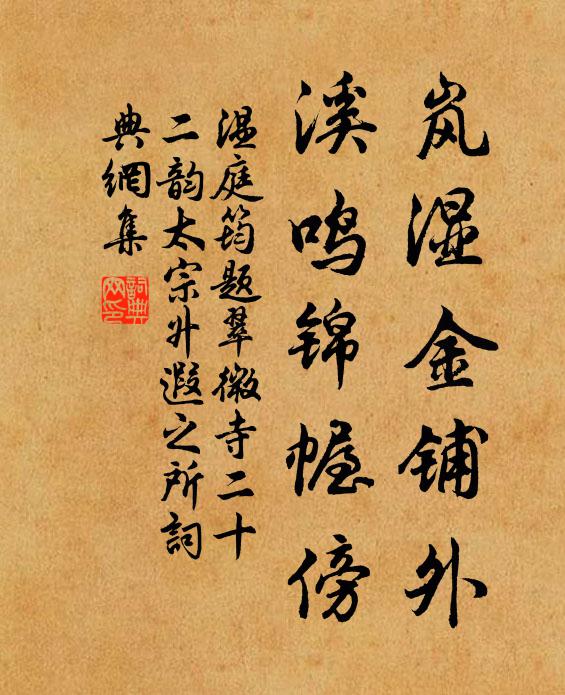 岚湿金铺外
溪鸣锦幄傍
温庭筠题翠微寺二十
二韵太宗升遐之所词
典網集
詞典
网印